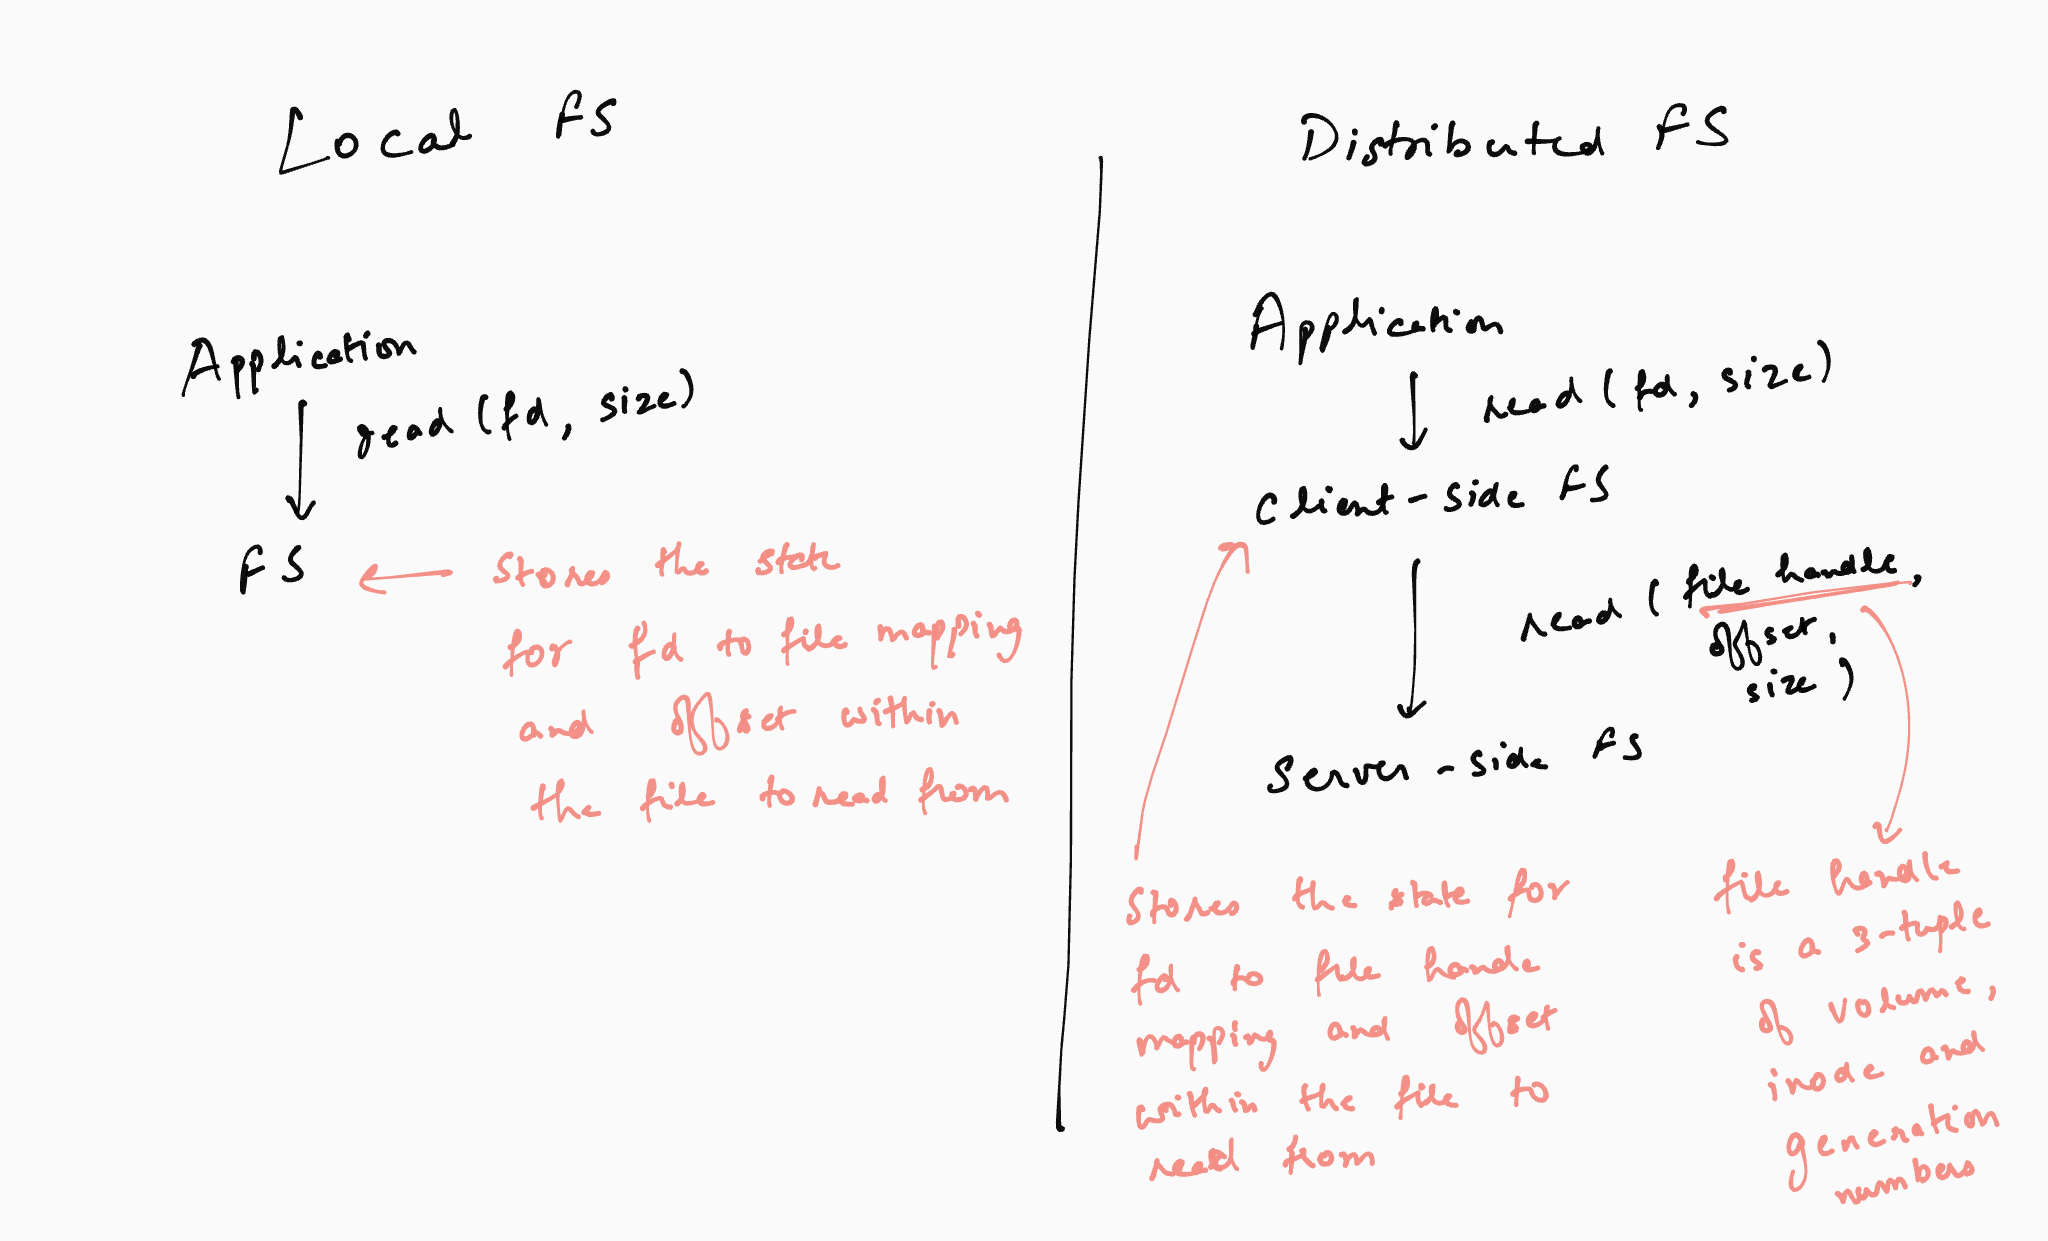 Local FS
Application
read (fd, size)
FS
Stores the state
for fd to file mapping
and offset within
the file to read from
Distributed FS
Application
read (fd, size)
Client-side FS
read (file handle,
offset,
size)
Server-side FS
Stores the state for
fd to file hande
mapping and offset
within the file to
read from
file handle
is a 3-tuple
of volume,
inode and
generation
numbers